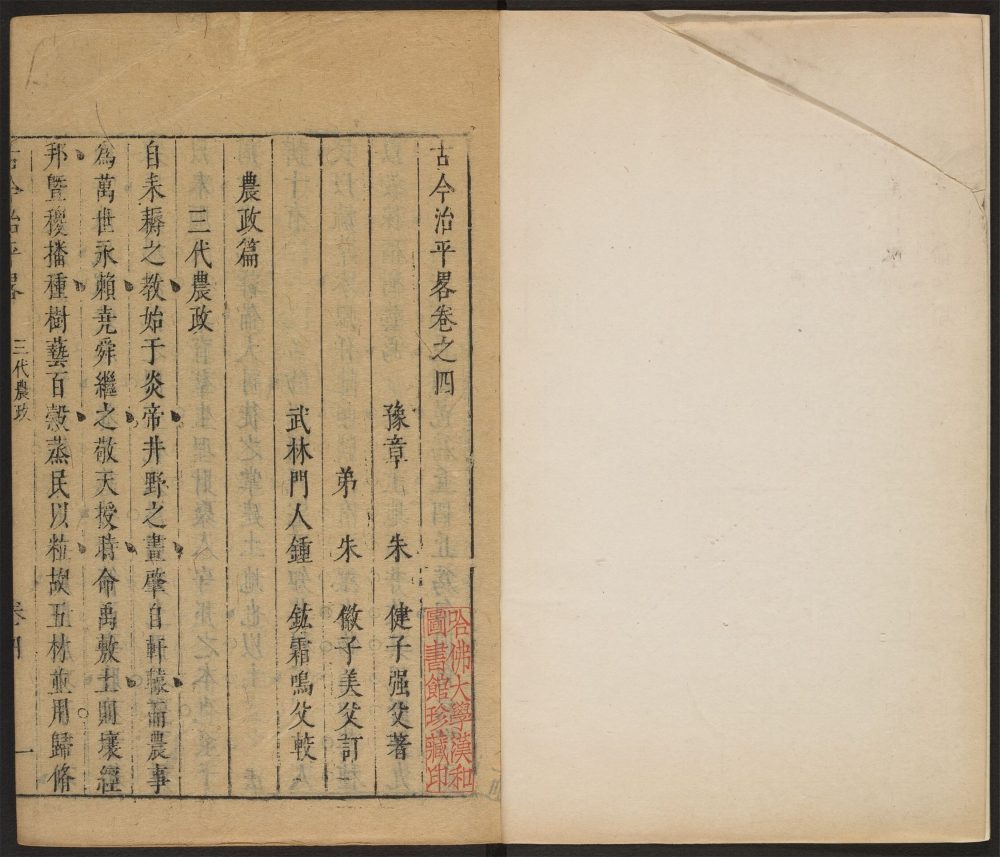 古今治平畧卷之四
豫章 朱 健子强父著
弟 朱 徽子美父訂
武林門人鍾 鈜霜鳴父較
農政篇
三代農政
自耒耨之教始于炎帝井野之畫肇自軒轅而農事
為萬世永賴堯舜繼之敬天授時命禹敷土則壤經
邦暨稷播種樹藝百穀蒸民以粒故五材並用歸脩
古今治平畧 三代農政 卷四 一
哈佛大學漢和
圖書館珍藏印